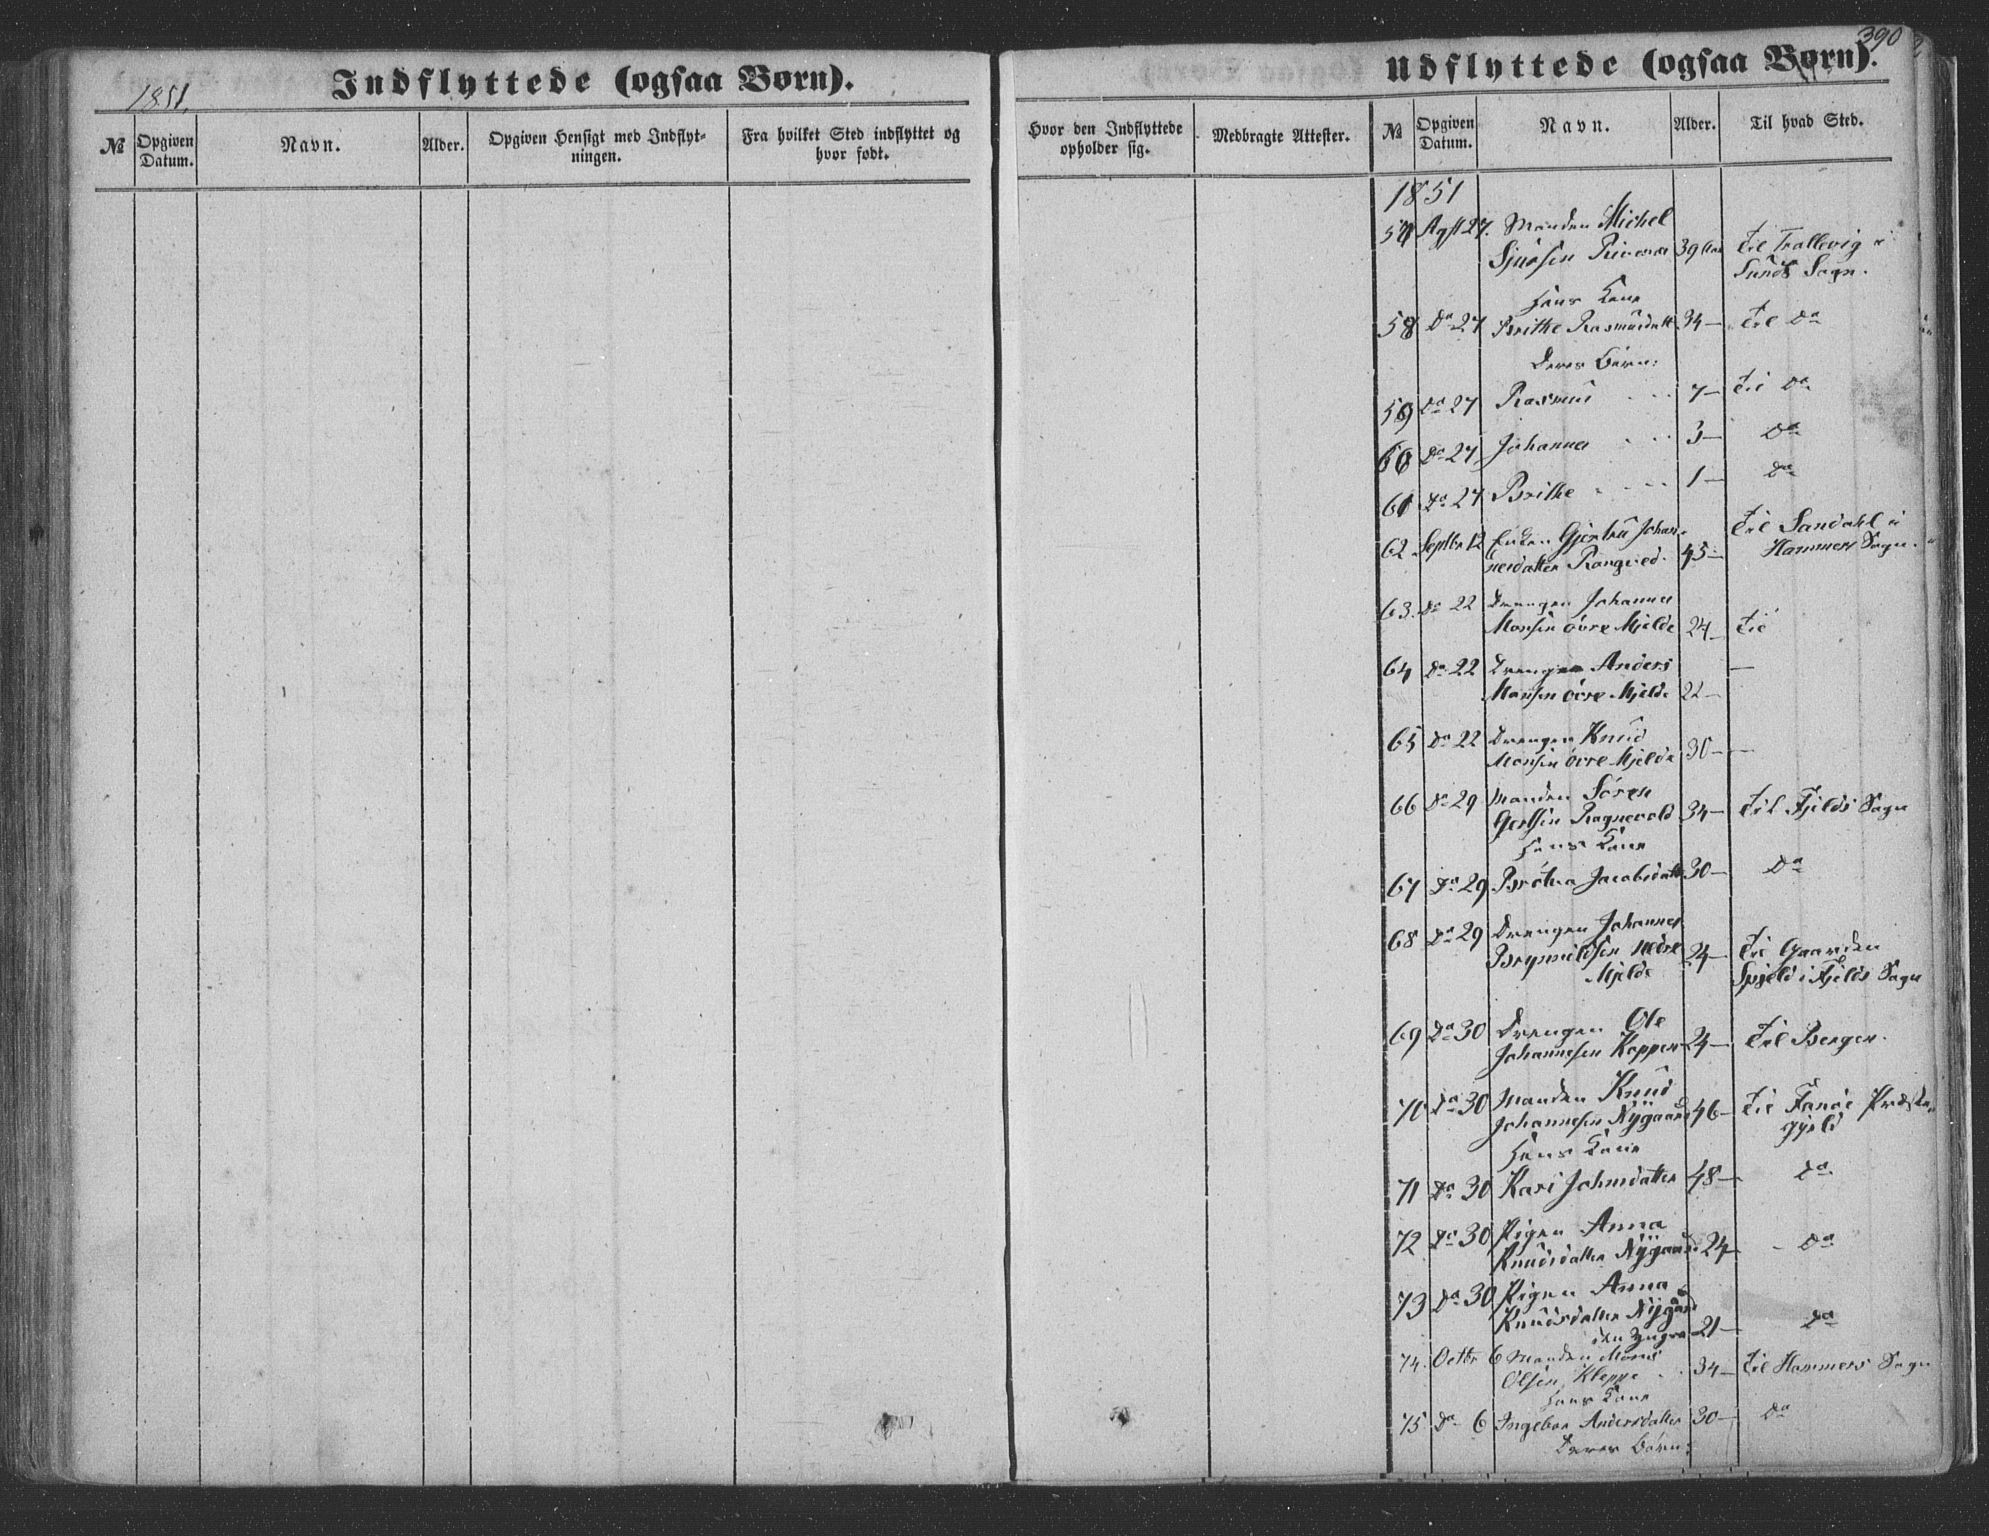 390
Indflyttede (ogsaa Børn).
Udflyttede (ogsaa Børn).
1851.
№ Opgiven Datum. Navn. Alder. Opgiven Hensigt med Indflyt-
ningen. Fra hvilket Sted indflyttet og
hvor født.
Hvor den Indflyttede
opholder sig. Medbragte Attester. № Opgiven
Datum. Navn. Alder. Til hvad Sted.
1851
Agst 27. Manden Michel
Sjursen 39 Til Trallevig i
Sunds Sogn.
Hans Kone
58 Do 27 Brithe Rasmusdatt 34 — Til Do
Deres Børn:
59 Do 27 Rasmus 7 — Til Do
60 Do 27 Johannes 3 — Do
61 Do 27 Brithe 1 — Do
62 Septbr 12 Enken Gjertru Johan-
nesdatter 45 — Til Sandahl i
Hammers Sogn.
63. Do 22 Drengen Johannes
Monsen øvre Mjelde 24 — Til
64 Do 22 Drengen Anders
Monsen øvre Mjelde 22 — —
65 Do 22 Drengen Knud
Monsen øvre Mjelde 30 — —
66 Do 29 Manden Sören
Ragnevald 34 — Til Fjelds Sogn
Hans Kone
67 Do 29 Jacobsdatt 30 — Do
68 Do 29 Drengen Johannes
Brynnildsen nedre
Mjelde 24 — Til Gaarden
Spjeld i Fjelds Sogn
69 Do 30 Drengen Ole
Johannesen Koppen 24 — Til Bergen.
70 Do 30 Manden Knud
Johannesen Nygaard 46 — Til Fanöe Præste-
gjeld
Hans Kone
71 Do 30 Kari Johnsdatter 48 — Do
72 Do 30 Pigen Anna
Knudsdatter Nygaard 24 — Do
73 Do 30 Pigen Anna
Knudsdatter Nygård
den yngre 21 — Do
74. Octbr 6 Manden Mons
Olsen Kleppe 34 — Til Hammers Sogn
Hans Kone
75 Do 6 Ingebor Andersdatter 30 — Do
Deres Børn: